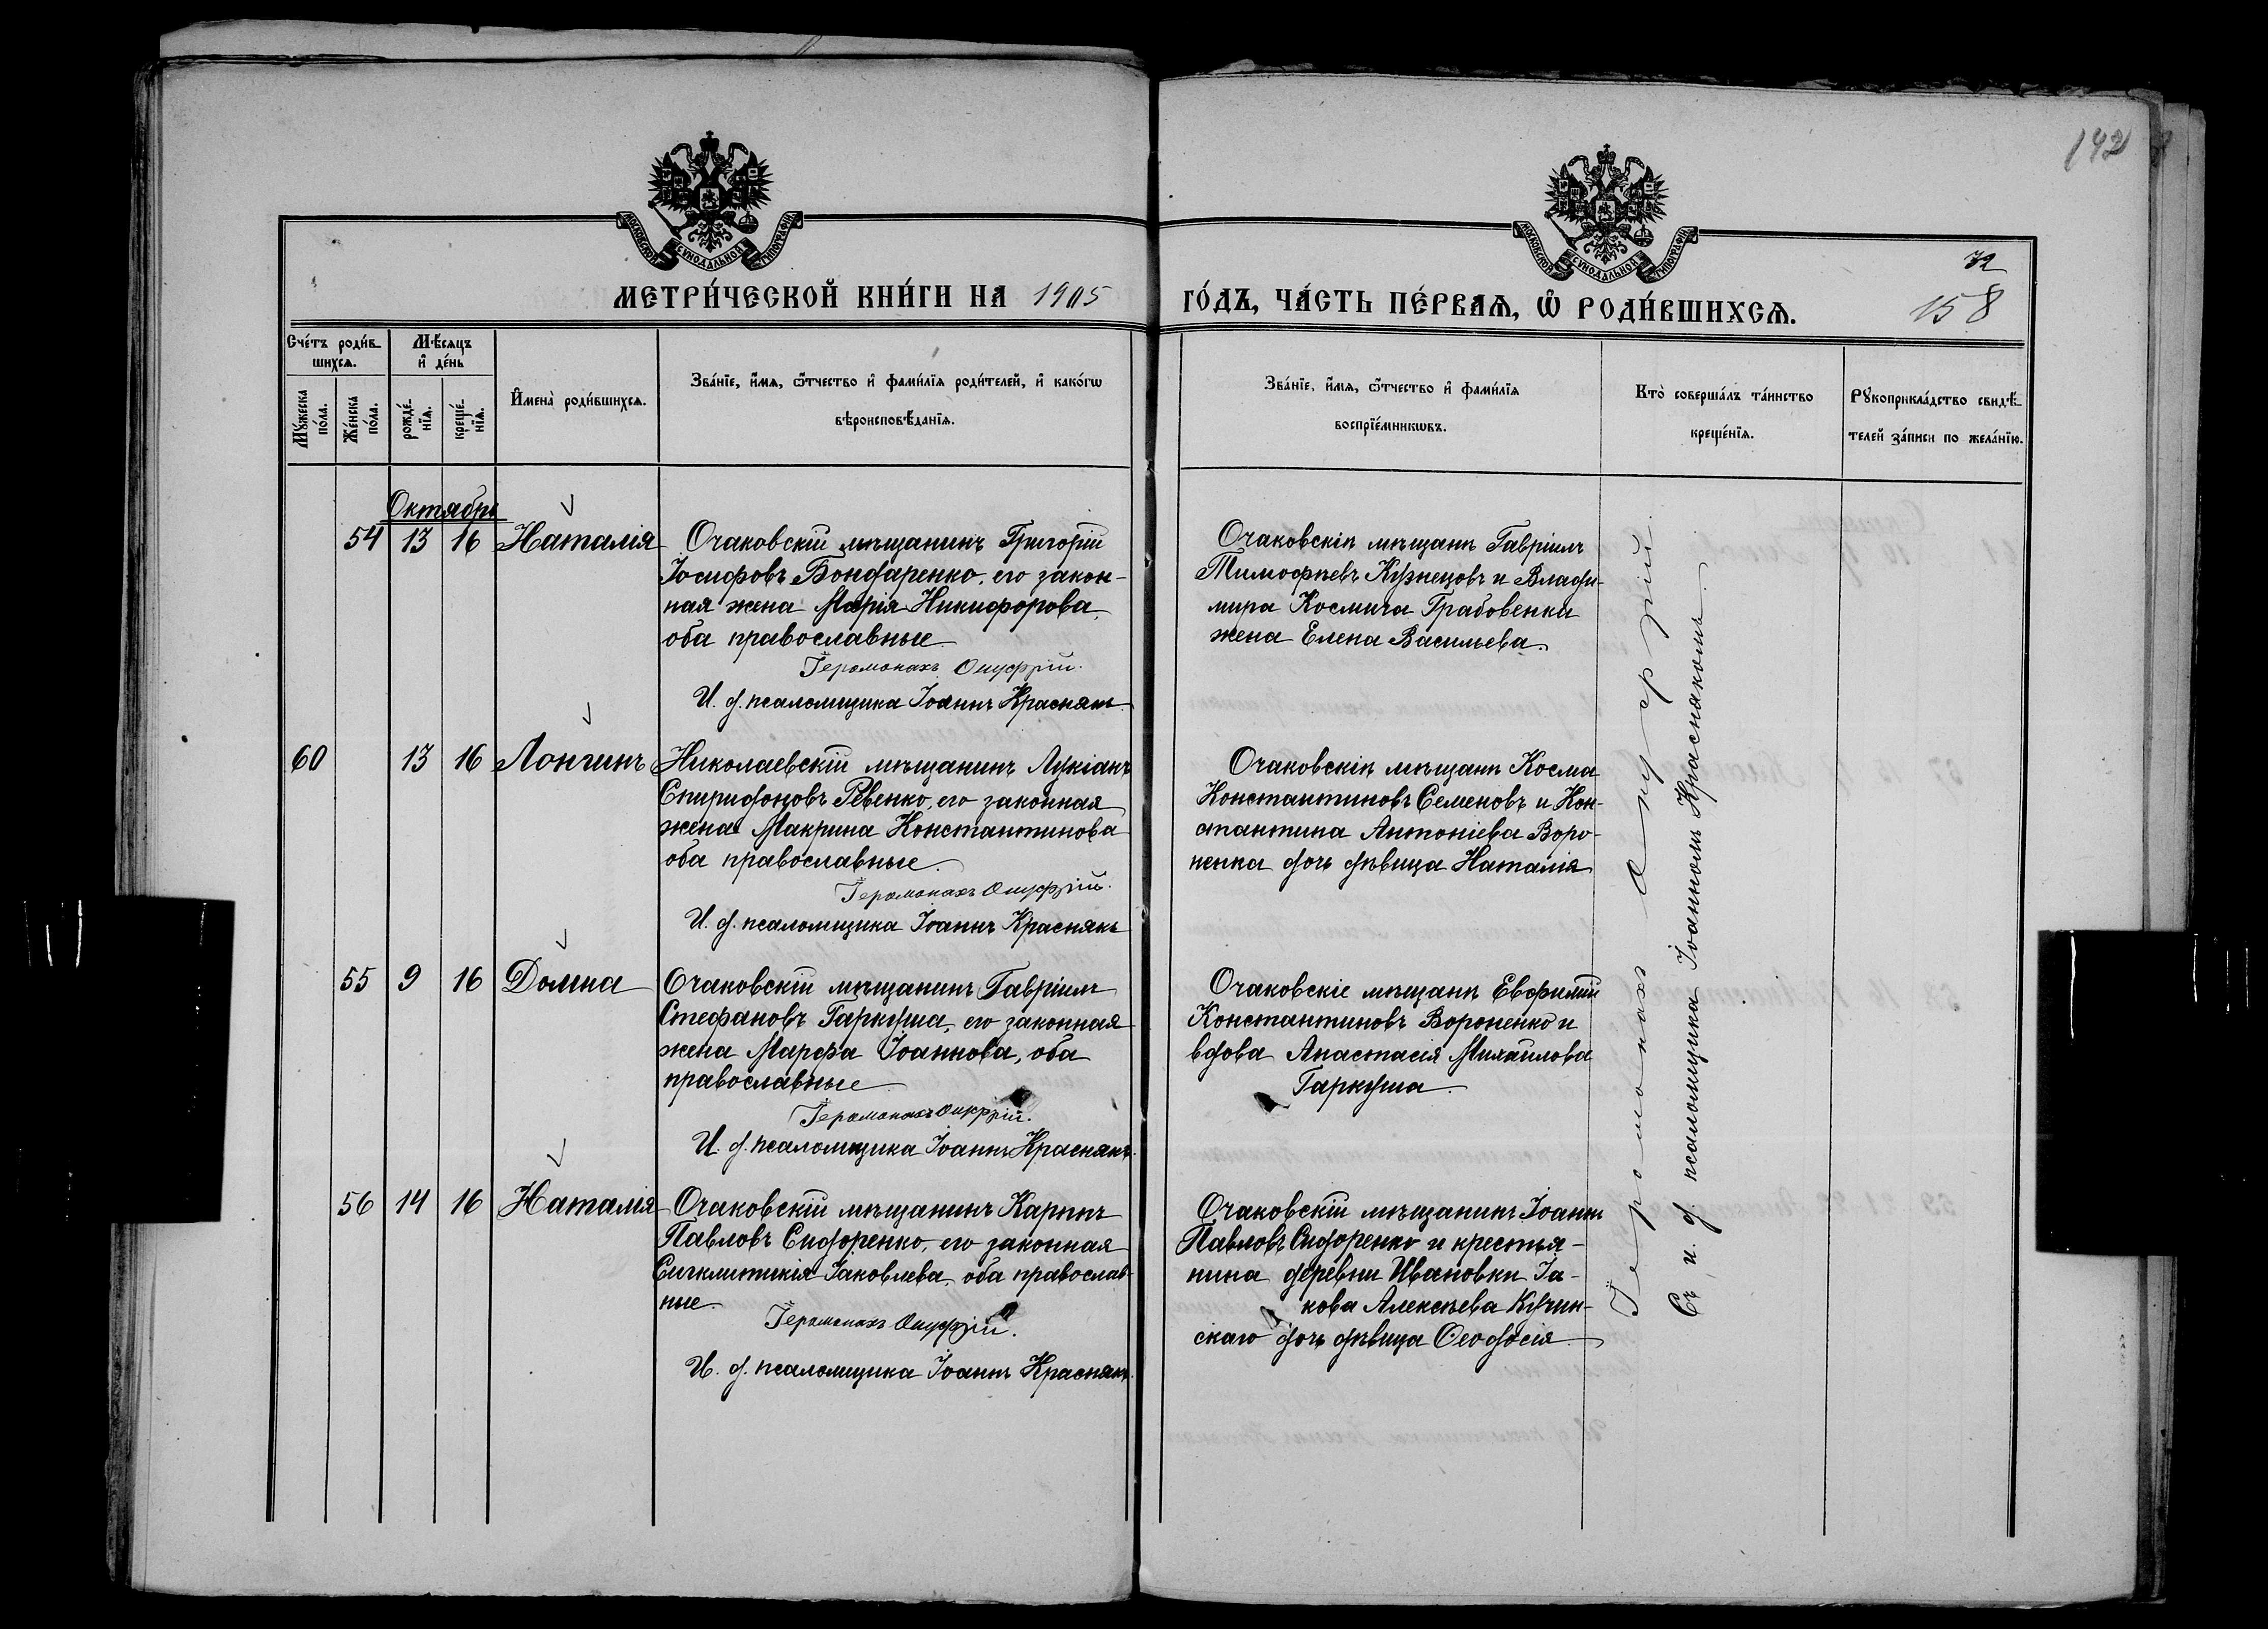 142
МОСКОВСКОЙ СѴНОДАЛЬНОЙ ТИПОГРАФІИ
МОСКОВСКОЙ СѴНОДАЛЬНОЙ ТИПОГРАФІИ
72
МЕТРИ́ЧЕСКОЙ КНИ́ГИ НА 1905
ГО́ДЪ, ЧА́СТЬ ПЕ́РВАѦ, Ѽ РОДИ́ВШИХСѦ.
158
Сче́тъ роди́в-
шихсѧ.
Мѣ́сѧцъ
и҆ де́нь
Мꙋ́жеска
по́ла.
Же́нска
по́ла.
рожде́-
нїѧ.
креще́-
нїѧ.
И҆мена̀ роди́вшихсѧ.
Зва́нїе, и҆́мѧ, ѻ҆́тчество и҆ фами́лїѧ роди́телей, и҆ како́гѡ
вѣроисповѣ́данїѧ.
Зва́нїе, и҆́мѧ, ѻ҆́тчество и҆ фами́лїѧ
воспрїе́мникѡвъ.
Кто̀ соверша́лъ та́инство
креще́нїѧ.
Рꙋкоприкла́дство свидѣ́-
телей за́писи по жела́нїю.
Октябрь
54 13 16 Наталія
Очаковскій мѣщанинъ Григорій
Іосифовъ Бондаренко, его закон-
ная жена Марія Никифорова,
оба православные.
Іеромонахъ Онуфрій.
И. д. псаломщика Іоаннъ Краснякъ.
Очаковскіе мѣщане Гавріилъ
Тимофѣевъ Кузнецовъ и Влади-
мира Космича Грабовенка
жена Елена Васильева.
60 13 16 Лонгинъ
Николаевскій мѣщанинъ Лукіанъ
Спиридоновъ Ревенко, его законная
жена Макрина Константинова
оба православные.
Іеромонахъ Онуфрій.
И. д. псаломщика Іоаннъ Краснякъ
Очаковскіе мѣщане Косма
Константиновъ Семеновъ и Кон-
стантина Антоніева Воро-
ненка дочь дѣвица Наталія
55 9 16 Домна
Очаковскій мѣщанинъ Гавріилъ
Стефановъ Гаркуша, его законная
жена Марфа Іоаннова, оба
православные
Іеромонахъ Онуфрій.
И. д. псаломщика Іоаннъ Краснякъ.
Очаковскіе мѣщане Евфимій
Константиновъ Вороненко и
вдова Анастасія Михаилова
Гаркуша.
56 14 16 Наталія
Очаковскій мѣщанинъ Карпъ
Павловъ Сидоренко, его законная
Сигклитикія Іаковлева, оба православ-
ные.
Іеромонахъ Онуфрій.
И. д. псаломщика Іоаннъ Краснякъ.
Очаковскій мѣщанинъ Іоаннъ
Павловъ Сидоренко и крестья-
нина деревни Ивановки Іа-
кова Алексѣева Кучин-
скаго дочь дѣвица Ѳеодосія.
Іеромонахъ Онуфрій
Съ и. д. псаломщика Іоанномъ Краснякомъ.